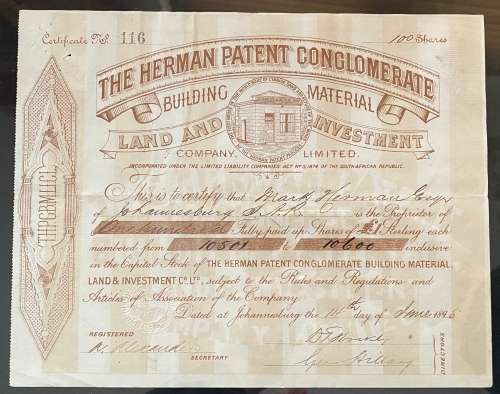 Certificate No. 116
100 Shares
THE HERMAN PATENT CONGLOMERATE
BUILDING MATERIAL
LAND AND INVESTMENT
COMPANY, LIMITED.
INCORPORATED UNDER THE LIMITED LIABILITY COMPANIES' ACT No 5, 1874 OF THE SOUTH AFRICAN REPUBLIC.
This is to certify that Mark Herman Esqr
of Johannesburg S.A.R. is the Proprietor of
One hundred Fully paid up Shares of £1 Sterling each
numbered from 10501 to 10600 inclusive
in the Capital Stock of THE HERMAN PATENT CONGLOMERATE BUILDING MATERIAL,
LAND & INVESTMENT Co. LTD, subject to the Rules and Regulations and
Articles of Association of the Company.
Dated at Johannesburg the 14th day of June 1895
REGISTERED
SECRETARY
DIRECTORS